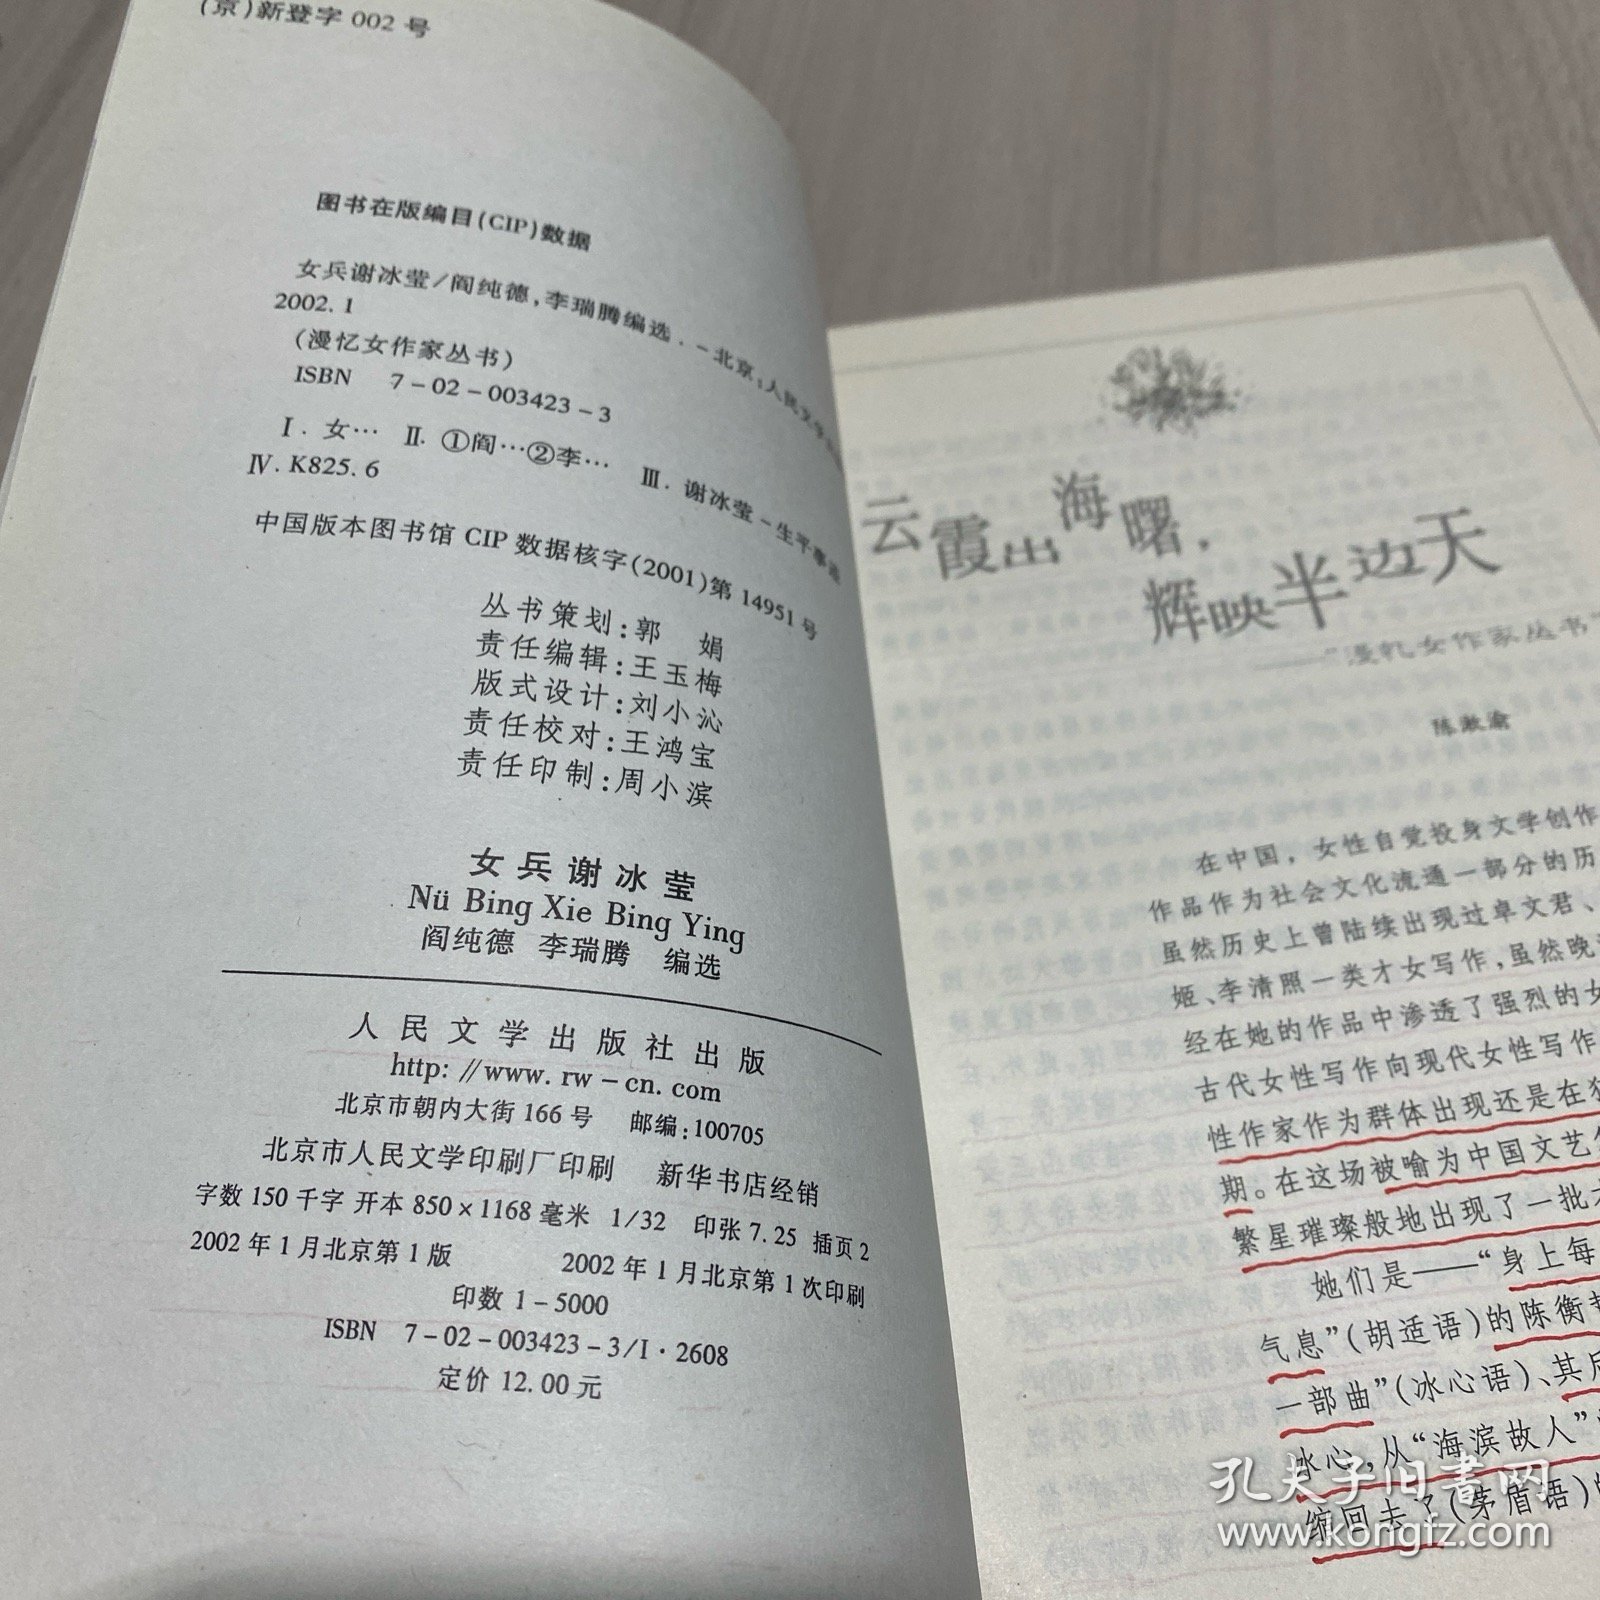 (京)新登字 002 号
图书在版编目(CIP)数据
女兵谢冰莹/阎纯德,李瑞腾编选.-北京:人民文学
2002.1
(漫忆女作家丛书)
ISBN 7-02-003423-3
Ⅰ.女… Ⅱ.①阎…②李… Ⅲ.谢冰莹-生平事迹
Ⅳ.K825.6
中国版本图书馆 CIP 数据核字(2001)第 14951 号
丛书策划:郭 娟
责任编辑:王玉梅
版式设计:刘小沁
责任校对:王鸿宝
责任印制:周小滨
女兵谢冰莹
Nü Bing Xie Bing Ying
阎纯德 李瑞腾 编选
人民文学出版社出版
http://www.rw-cn.com
北京市朝内大街 166 号 邮编:100705
北京市人民文学印刷厂印刷 新华书店经销
字数 150 千字 开本 850×1168 毫米 1/32 印张 7.25 插页 2
2002 年 1 月北京第 1 版 2002 年 1 月北京第 1 次印刷
印数 1-5000
ISBN 7-02-003423-3/I·2608
定价 12.00 元
云霞出海曙,
辉映半边天
——“漫忆女作家丛书”
陈漱渝
在中国，女性自觉投身文学创作
作品作为社会文化流通一部分的历
虽然历史上曾陆续出现过卓文君、
姬、李清照一类才女写作,虽然晚
经在她的作品中渗透了强烈的女
古代女性写作向现代女性写作
性作家作为群体出现还是在
期。在这场被喻为中国文艺
繁星璀璨般地出现了一批
她们是——“身上每
气息”(胡适语)的陈衡
一部曲”(冰心语)、其
冰心,从“海滨故人”
缩回去了(茅盾语)
孔夫子旧书网
www.kongfz.com